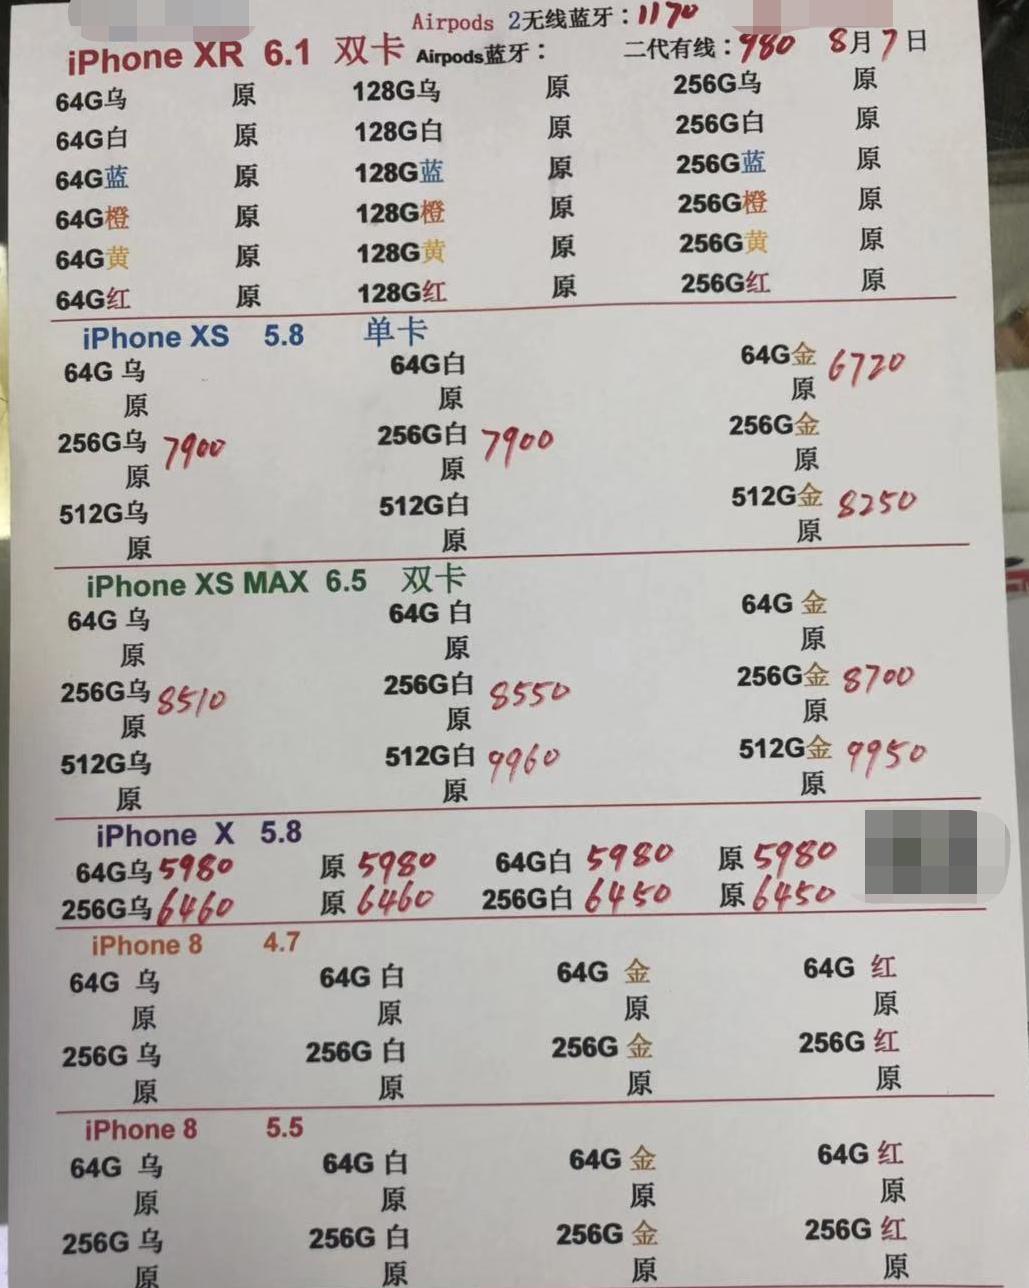 Airpods 2无线蓝牙：1170
iPhone XR 6.1 双卡 Airpods蓝牙： 二代有线：980 8月7日
64G乌 原 128G乌 原 256G乌 原
64G白 原 128G白 原 256G白 原
64G蓝 原 128G蓝 原 256G蓝 原
64G橙 原 128G橙 原 256G橙 原
64G黄 原 128G黄 原 256G黄 原
64G红 原 128G红 原 256G红 原
iPhone XS 5.8 单卡
64G 乌 64G白 64G金 6720
原 原 原
256G乌 7900 256G白 7900 256G金
原 原 原
512G乌 512G白 512G金 8250
原 原 原
iPhone XS MAX 6.5 双卡
64G 乌 64G 白 64G 金
原 原 原
256G乌 8510 256G白 8550 256G金 8700
原 原 原
512G乌 512G白 9960 512G金 9950
原 原 原
iPhone X 5.8
64G乌 5980 原 5980 64G白 5980 原 5980
256G乌 6460 原 6460 256G白 6450 原 6450
iPhone 8 4.7
64G 乌 64G 白 64G 金 64G 红
原 原 原 原
256G 乌 256G 白 256G 金 256G 红
原 原 原 原
iPhone 8 5.5
64G 乌 64G 白 64G 金 64G 红
原 原 原 原
256G 乌 256G 白 256G 金 256G 红
原 原 原 原